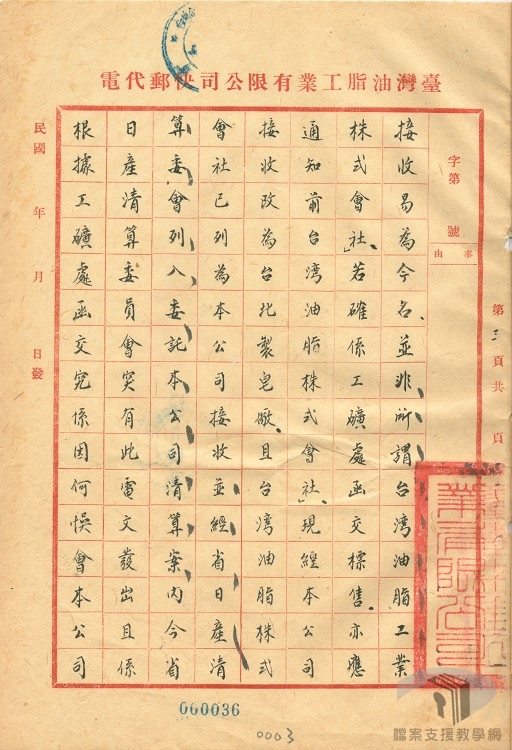 臺灣油脂工業有限公司快郵代電
第三頁共 頁
字第 號
事由
接收易為今名、並非所謂台湾油脂工業
株式會社」若確係工礦處函交標售、亦應
通知前台湾油脂株式會社」現經本公司
接收改為台北製皂廠、且台湾油脂株式
會社已列為本公司接收並經省日產清
算委會列入委託本公司清算案內今省
日產清算委員會突有此電文發出且係
根據工礦處函交究係因何悞會本公司
民國 年 月 日發
000036
0003
檔案支援教學網